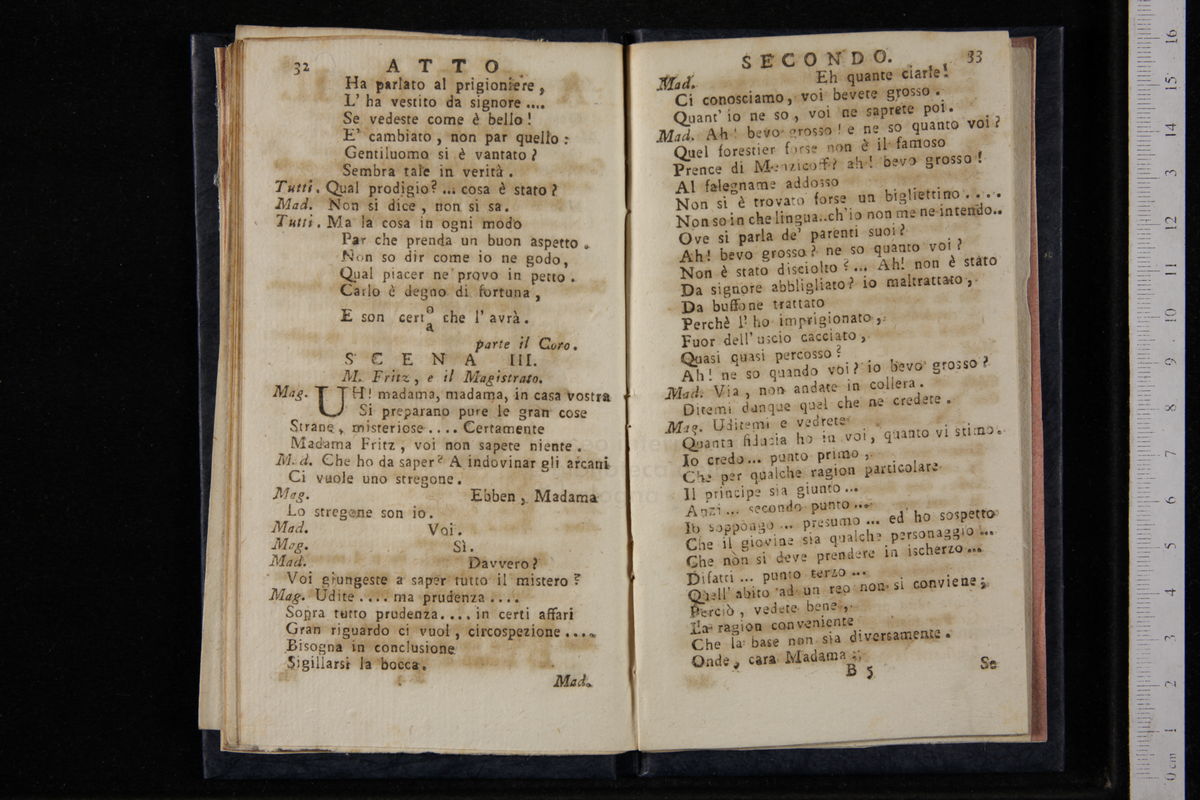 32 ATTO
Ha parlato al prigioniere,
L' ha vestito da signore ....
Se vedeste come è bello!
E' cambiato, non par quello:
Gentiluomo si è vantato?
Sembra tale in verità.
Tutti. Qual prodigio? ... cosa è stato?
Mad. Non si dice, non si sa.
Tutti. Ma la cosa in ogni modo
Par che prenda un buon aspetto.
Non so dir come io ne godo,
Qual piacer ne provo in petto.
Carlo è degno di fortuna,
E son cert o/a che l' avrà.
parte il Coro.
SCENA III.
M. Fritz, e il Magistrato.
Mag. UH! madama, madama, in casa vostra
Si preparano pure le gran cose
Strane, misteriose .... Certamente
Madama Fritz, voi non sapete niente.
Mad. Che ho da saper? A indovinar gli arcani
Ci vuole uno stregone.
Mag. Ebben, Madama
Lo stregone son io.
Mad. Voi.
Mag. Sì.
Mad. Davvero?
Voi giungeste a saper tutto il mistero?
Mag. Udite .... ma prudenza ....
Sopra tutto prudenza.... in certi affari
Gran riguardo ci vuol, circospezione ....
Bisogna in conclusione
Sigillarsi la bocca.
Mad.
SECONDO. 33
Mad. Eh quante ciarle!
Ci conosciamo, voi bevete grosso.
Quant' io ne so, voi ne saprete poi.
Mad. Ah! bevo grosso! e ne so quanto voi?
Quel forestier forse non è il famoso
Prence di Menzicoff? ah! bevo grosso!
Al falegname addosso
Non si è trovato forse un bigliettino ....
Non so in che lingua..ch'io non me ne intendo..
Ove si parla de' parenti suoi?
Ah! bevo grosso? ne so quanto voi?
Non è stato disciolto? ... Ah! non è stato
Da signore abbligliato? io maltrattato,
Da buffone trattato
Perchè l' ho imprigionato,
Fuor dell' uscio cacciato,
Quasi quasi percosso?
Ah! ne so quando voi? io bevo grosso?
Mad. Via, non andate in collera.
Ditemi dunque quel che ne credete.
Mag. Uditemi e vedrete
Quanta fiducia ho in voi, quanto vi stimo.
Io credo... punto primo,
Che per qualche ragion particolare
Il principe sia giunto...
Anzi... secondo punto...
Io soppongo ... presumo ... ed ho sospetto
Che il giovine sia qualche personaggio ...
Che non si deve prendere in ischerzo...
Difatti ... punto terzo ...
Quell' abito ad un reo non si conviene;
Perciò, vedete bene,
La ragion conveniente
Che la base non sia diversamente.
Onde, cara Madama
B 5 Se
0 cm 1 2 3 4 5 6 7 8 9 10 11 12 13 14 15 16